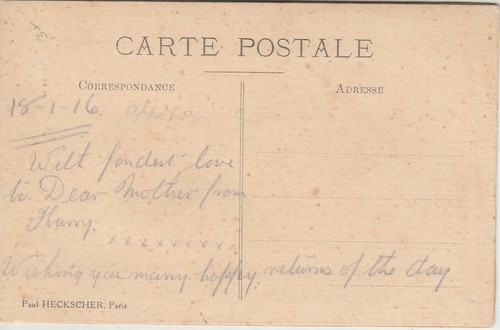 CARTE POSTALE
CORRESPONDANCE
ADRESSE
18-1-16.
With fondest love
to Dear Mother from
Harry.
x x x x x x x x x
Wishing you many happy returns of the day
Paul HECKSCHER, Paris